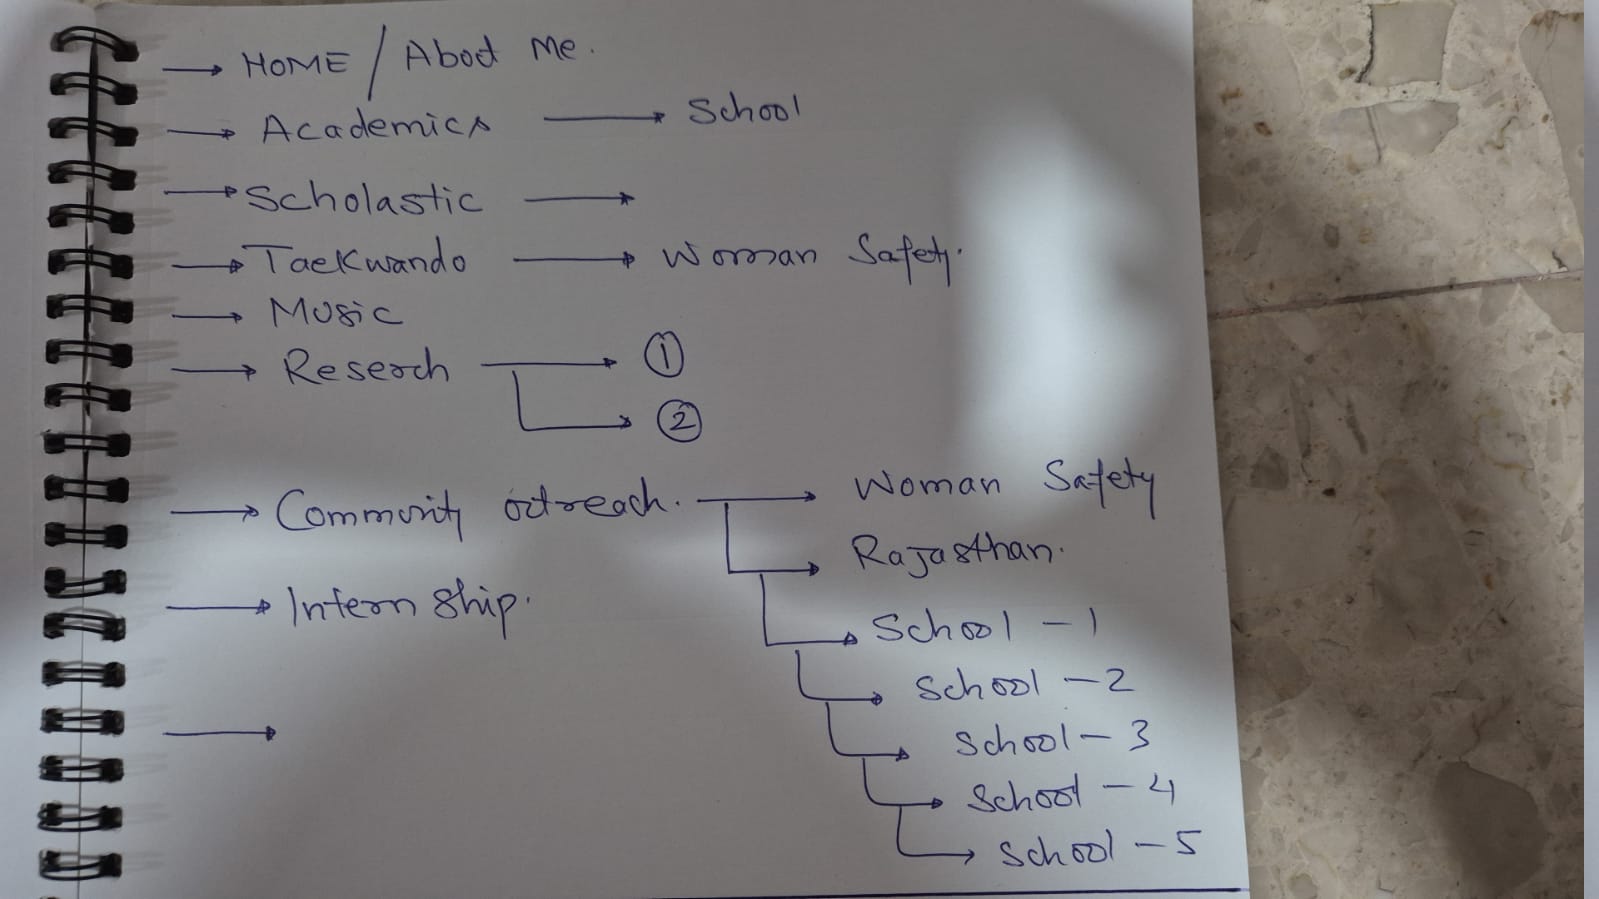 → HOME / About Me.
→ Academics → School
→ Scholastic →
→ Taekwando → Woman Safety.
→ Music
→ Reserch → ①
→ ②
→ Community outreach. → Woman Safety
→ Rajasthan.
→ Internship.
→ School - 1
→ School - 2
→
→ School - 3
→ School - 4
→ School - 5